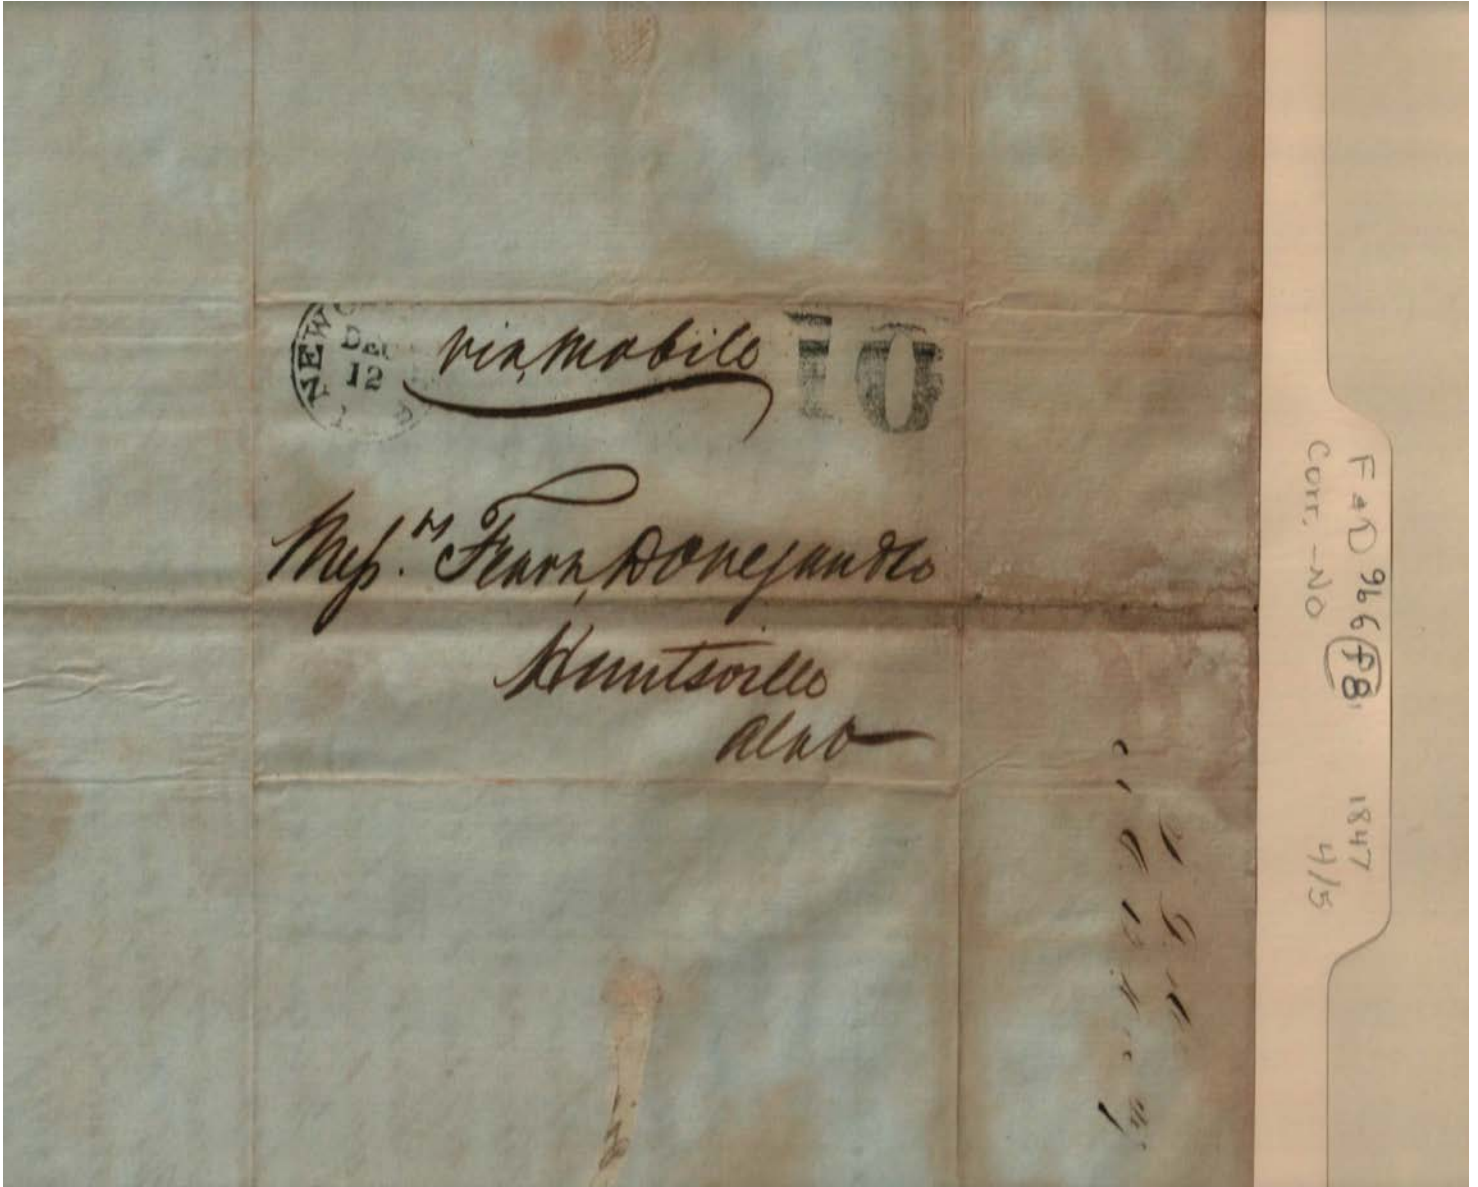 NEW O
DEC
12
LA
via, Mobile
10
Mess.rs Fearn, Donegan & Co
Huntsville
Alab
F & D 966 (f8) 1847
Corr. - NO 4/5